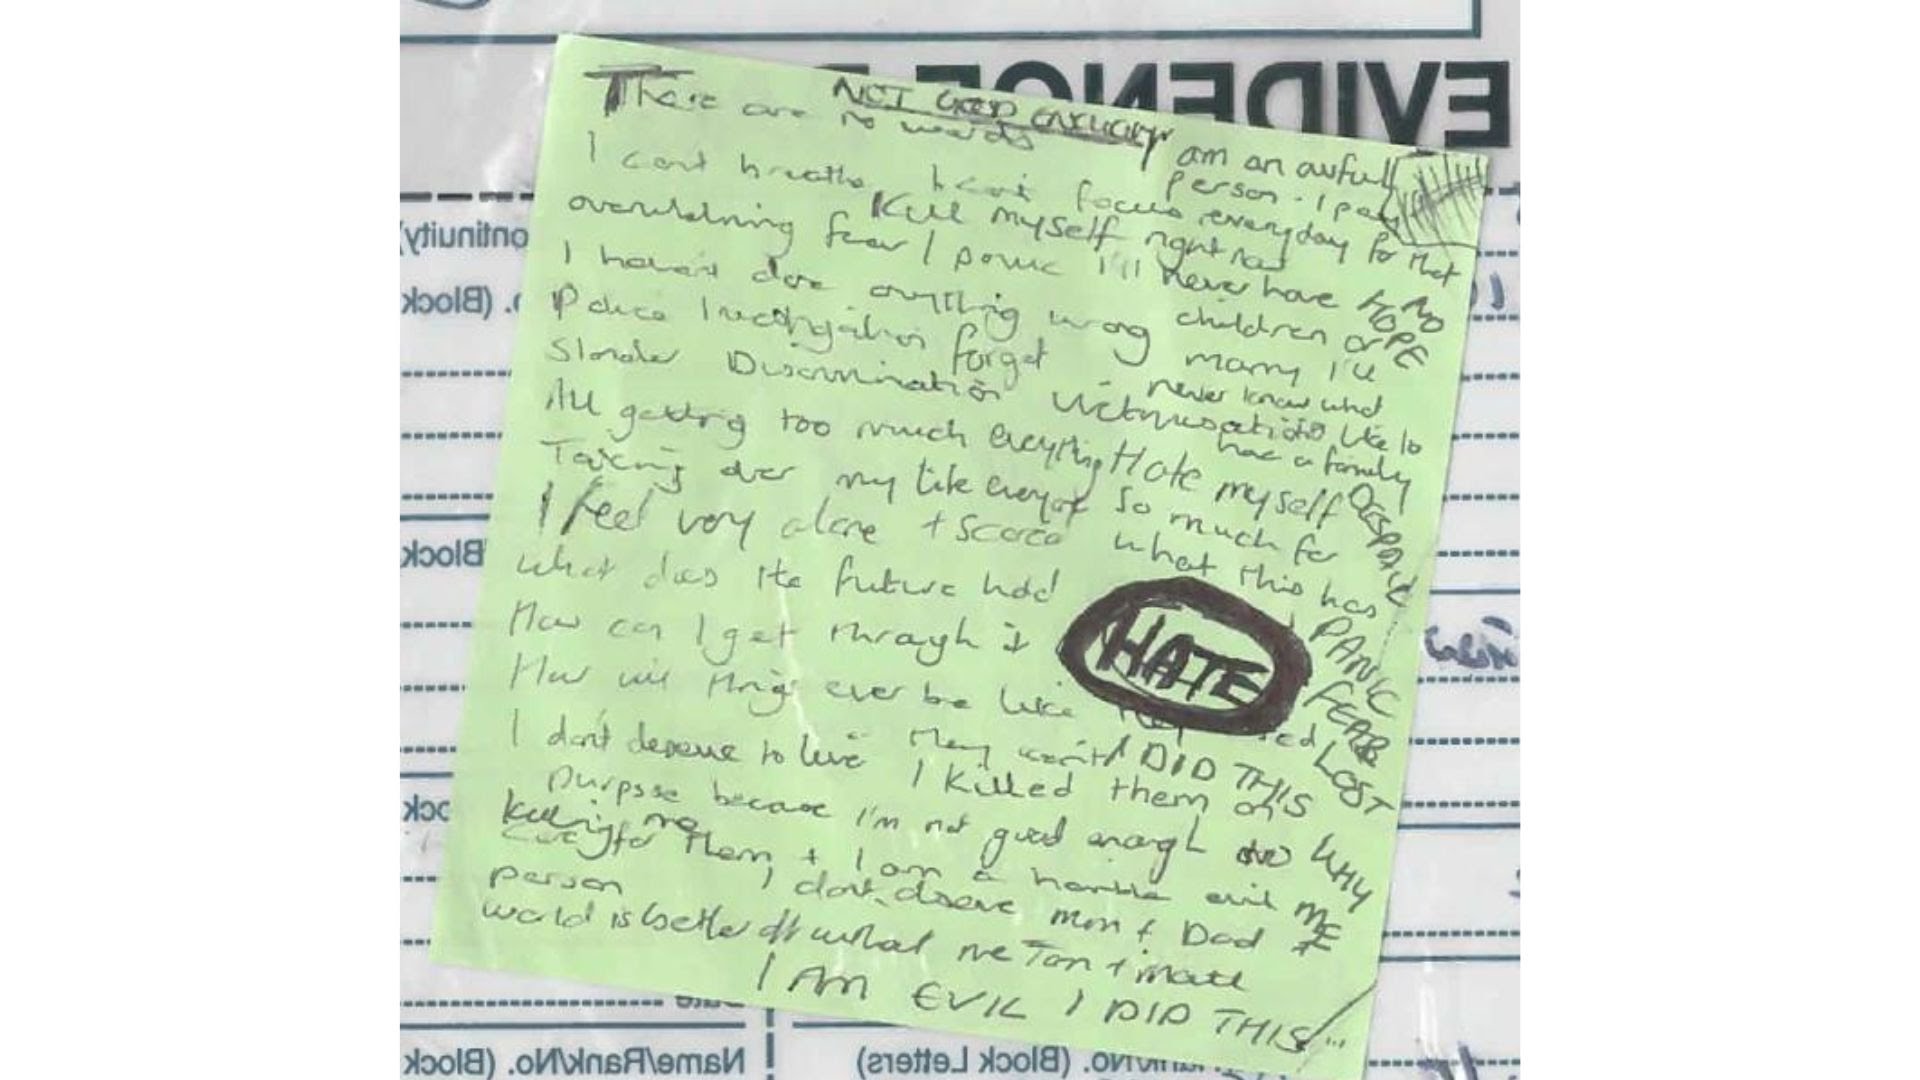 EVIDENCE
NOT GOOD ENOUGH
There are no words
I am an awful
person. I pay
everyday for that
I cant breathe I cant focus
overwhelming fear / panic
Kill myself right now
I'll never have
children or
marry I'll
never know what
it's like to
have a family
NO
HOPE
I havent done anything wrong
Police Investigation forget
Slander Discrimination Victimisation
All getting too much everything
Taking over my life everyone
Hate myself
so much for
what this has
DESPAIR
I feel very alone + scared
What does the future hold
How can I get through it
How will things ever be like
HATE
PANIC
FEAR
LOST
I don't deserve to live
I DID THIS
I killed them on
purpose because I'm not good enough to
care for them + I am a horrible evil
person
Killing me
WHY
ME
I dont deserve Mum + Dad
world is better off without me Tom + Matt
I AM EVIL I DID THIS
(Continuity)
No. (Block
Block
Block
Date
Name/Rank/No. (Block
Rank/No. (Block Letters)